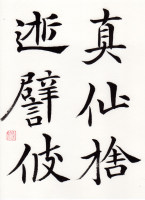 真仙捨
逝譬彼